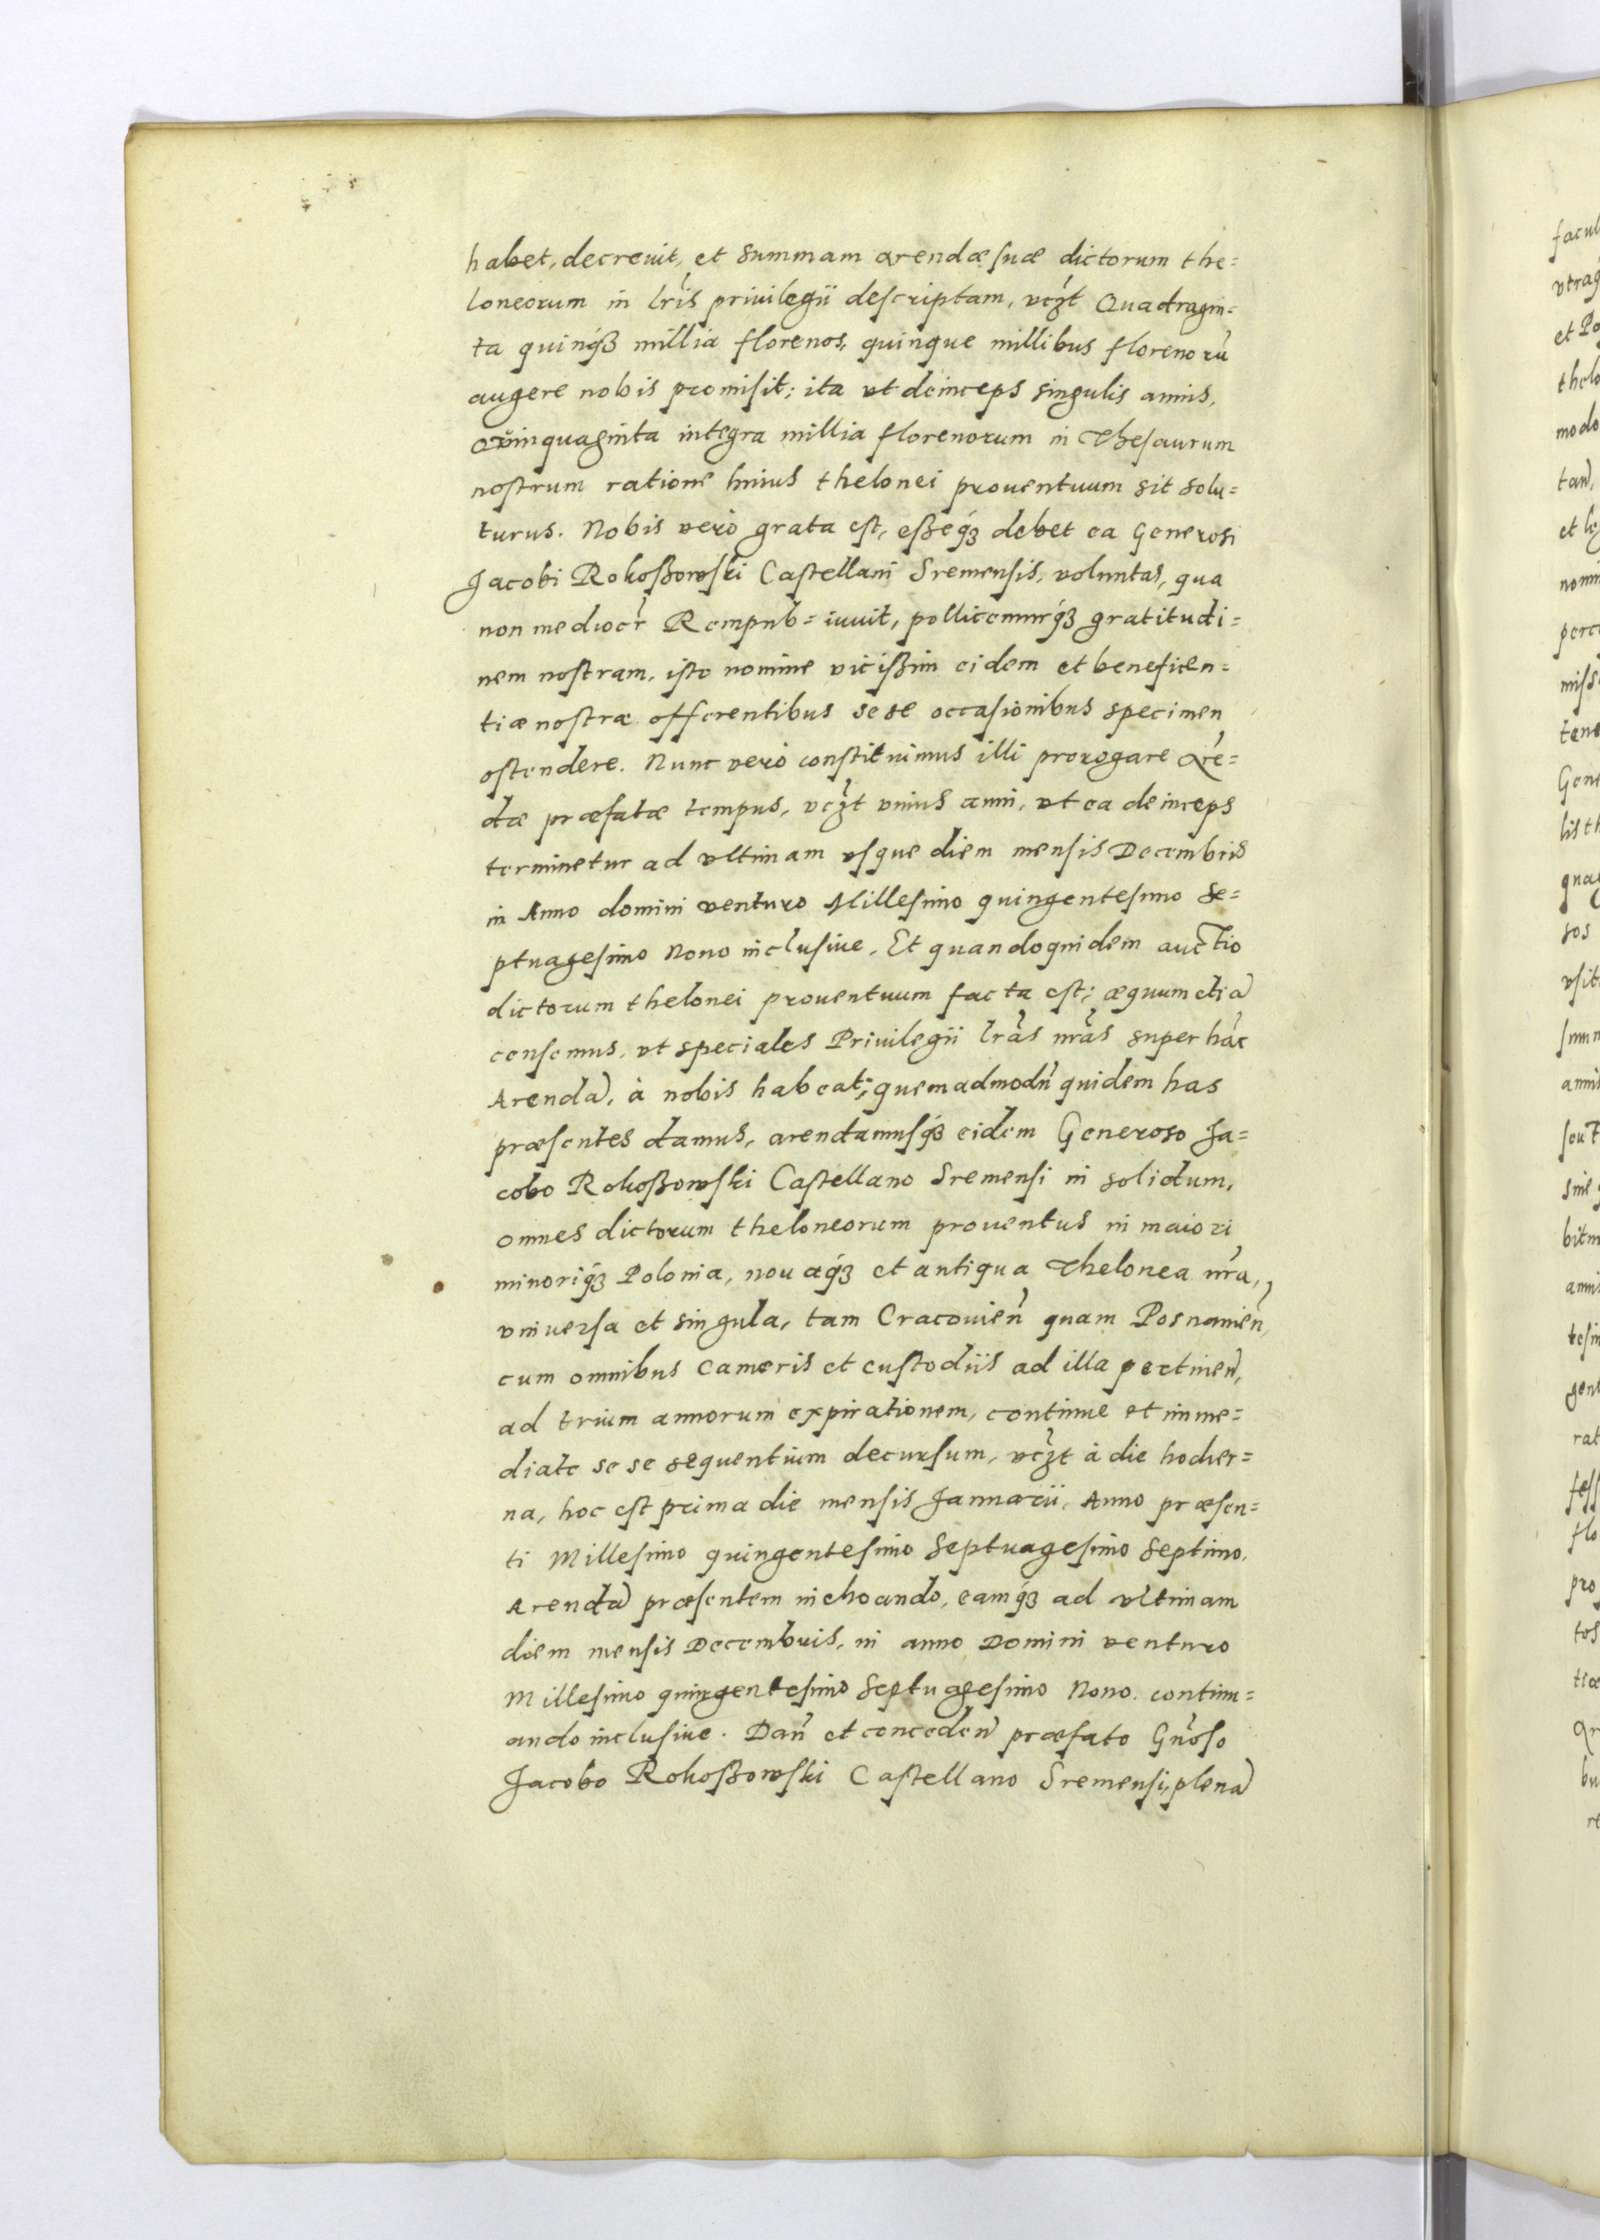 habet, decrevit, et Summam arendæ suæ dictorum the=
loneorum in lr̃is privilegii descriptam, vczt Quadragin=
ta quinqʒ millia florenos, quinque millibus florenorũ
augere nobis promisit; ita vt deinceps singulis annis,
Quinquaginta integra millia florenorum in Thesaurum
nostrum ratione huius thelonei prouentuum sit solu=
turus. Nobis verò grata est, eßeqʒ debet ea Generosi
Jacobi Rokoßowski Castellani Sremensis, voluntas, qua
non mediocr̃ Rempub= iuuit, pollicemurqʒ gratitudi=
nem nostram, isto nomine vicißim eidem et beneficen=
tiæ nostræ offerentibus sese occasionibus specimen
ostendere. Nunc verò constituimus illi prorogare arẽ=
dæ præfatæ tempus, vczt vnius anni, vt ea deinceps
terminetur ad vltimam vsque diem mensis Decembris
in Anno domini venturo Millesimo quingentesimo Se=
ptuagesimo Nono inclusiue. Et quandoquidem auctio
dictorum thelonei prouentuum facta est; æquum etiã
censemus, vt speciales Privilegii lrãs nrãs super hãc
Arendã, à nobis habeat; quemadmodũ quidem has
præsentes damus, arendamusqʒ eidem Generoso Ja=
cobo Rokoßowski Castellano Sremensi in solidum,
omnes dictorum theloneorum prouentus in maiori
minoriqʒ Polonia, nouaqʒ et antiqua Thelonea nr̃a,
vniversa et singula, tam Cracouieñ quam Posnanieñ,
cum omnibus cameris et custodiis ad illa pertineñ,
ad trium annorum expirationem, continue et imme=
diate se se sequentium decursum, vczt à die hodier=
na, hoc est prima die mensis Januarii, Anno præsen=
ti Millesimo quingentesimo Septuagesimo Septimo.
Arendã præsentem inchoando, eamqʒ ad vltimam
diem mensis Decembris, in anno Domini venturo
Millesimo quingentesimo Septuagesimo Nono. continu=
ando inclusiue. Dañ et concedeñ præfato Gñoso
Jacobo Rokoßowski Castellano Sremensi, plenã